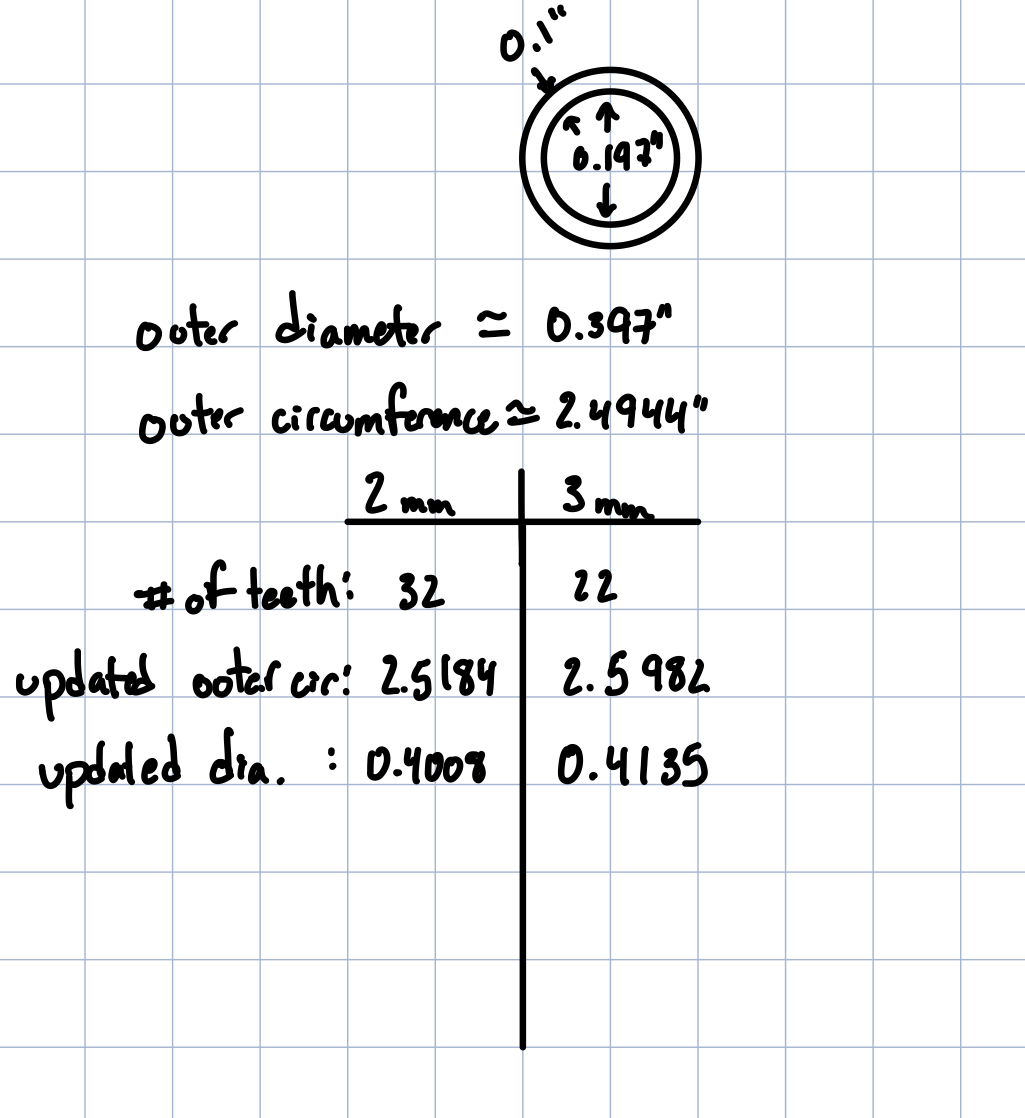 0.1"
0.197"
outer diameter ≃ 0.397"
outer circumference ≃ 2.4944"
2 mm 3 mm
# of teeth: 32 22
updated outer cir: 2.5184 2.5982
updated dia. : 0.4008 0.4135